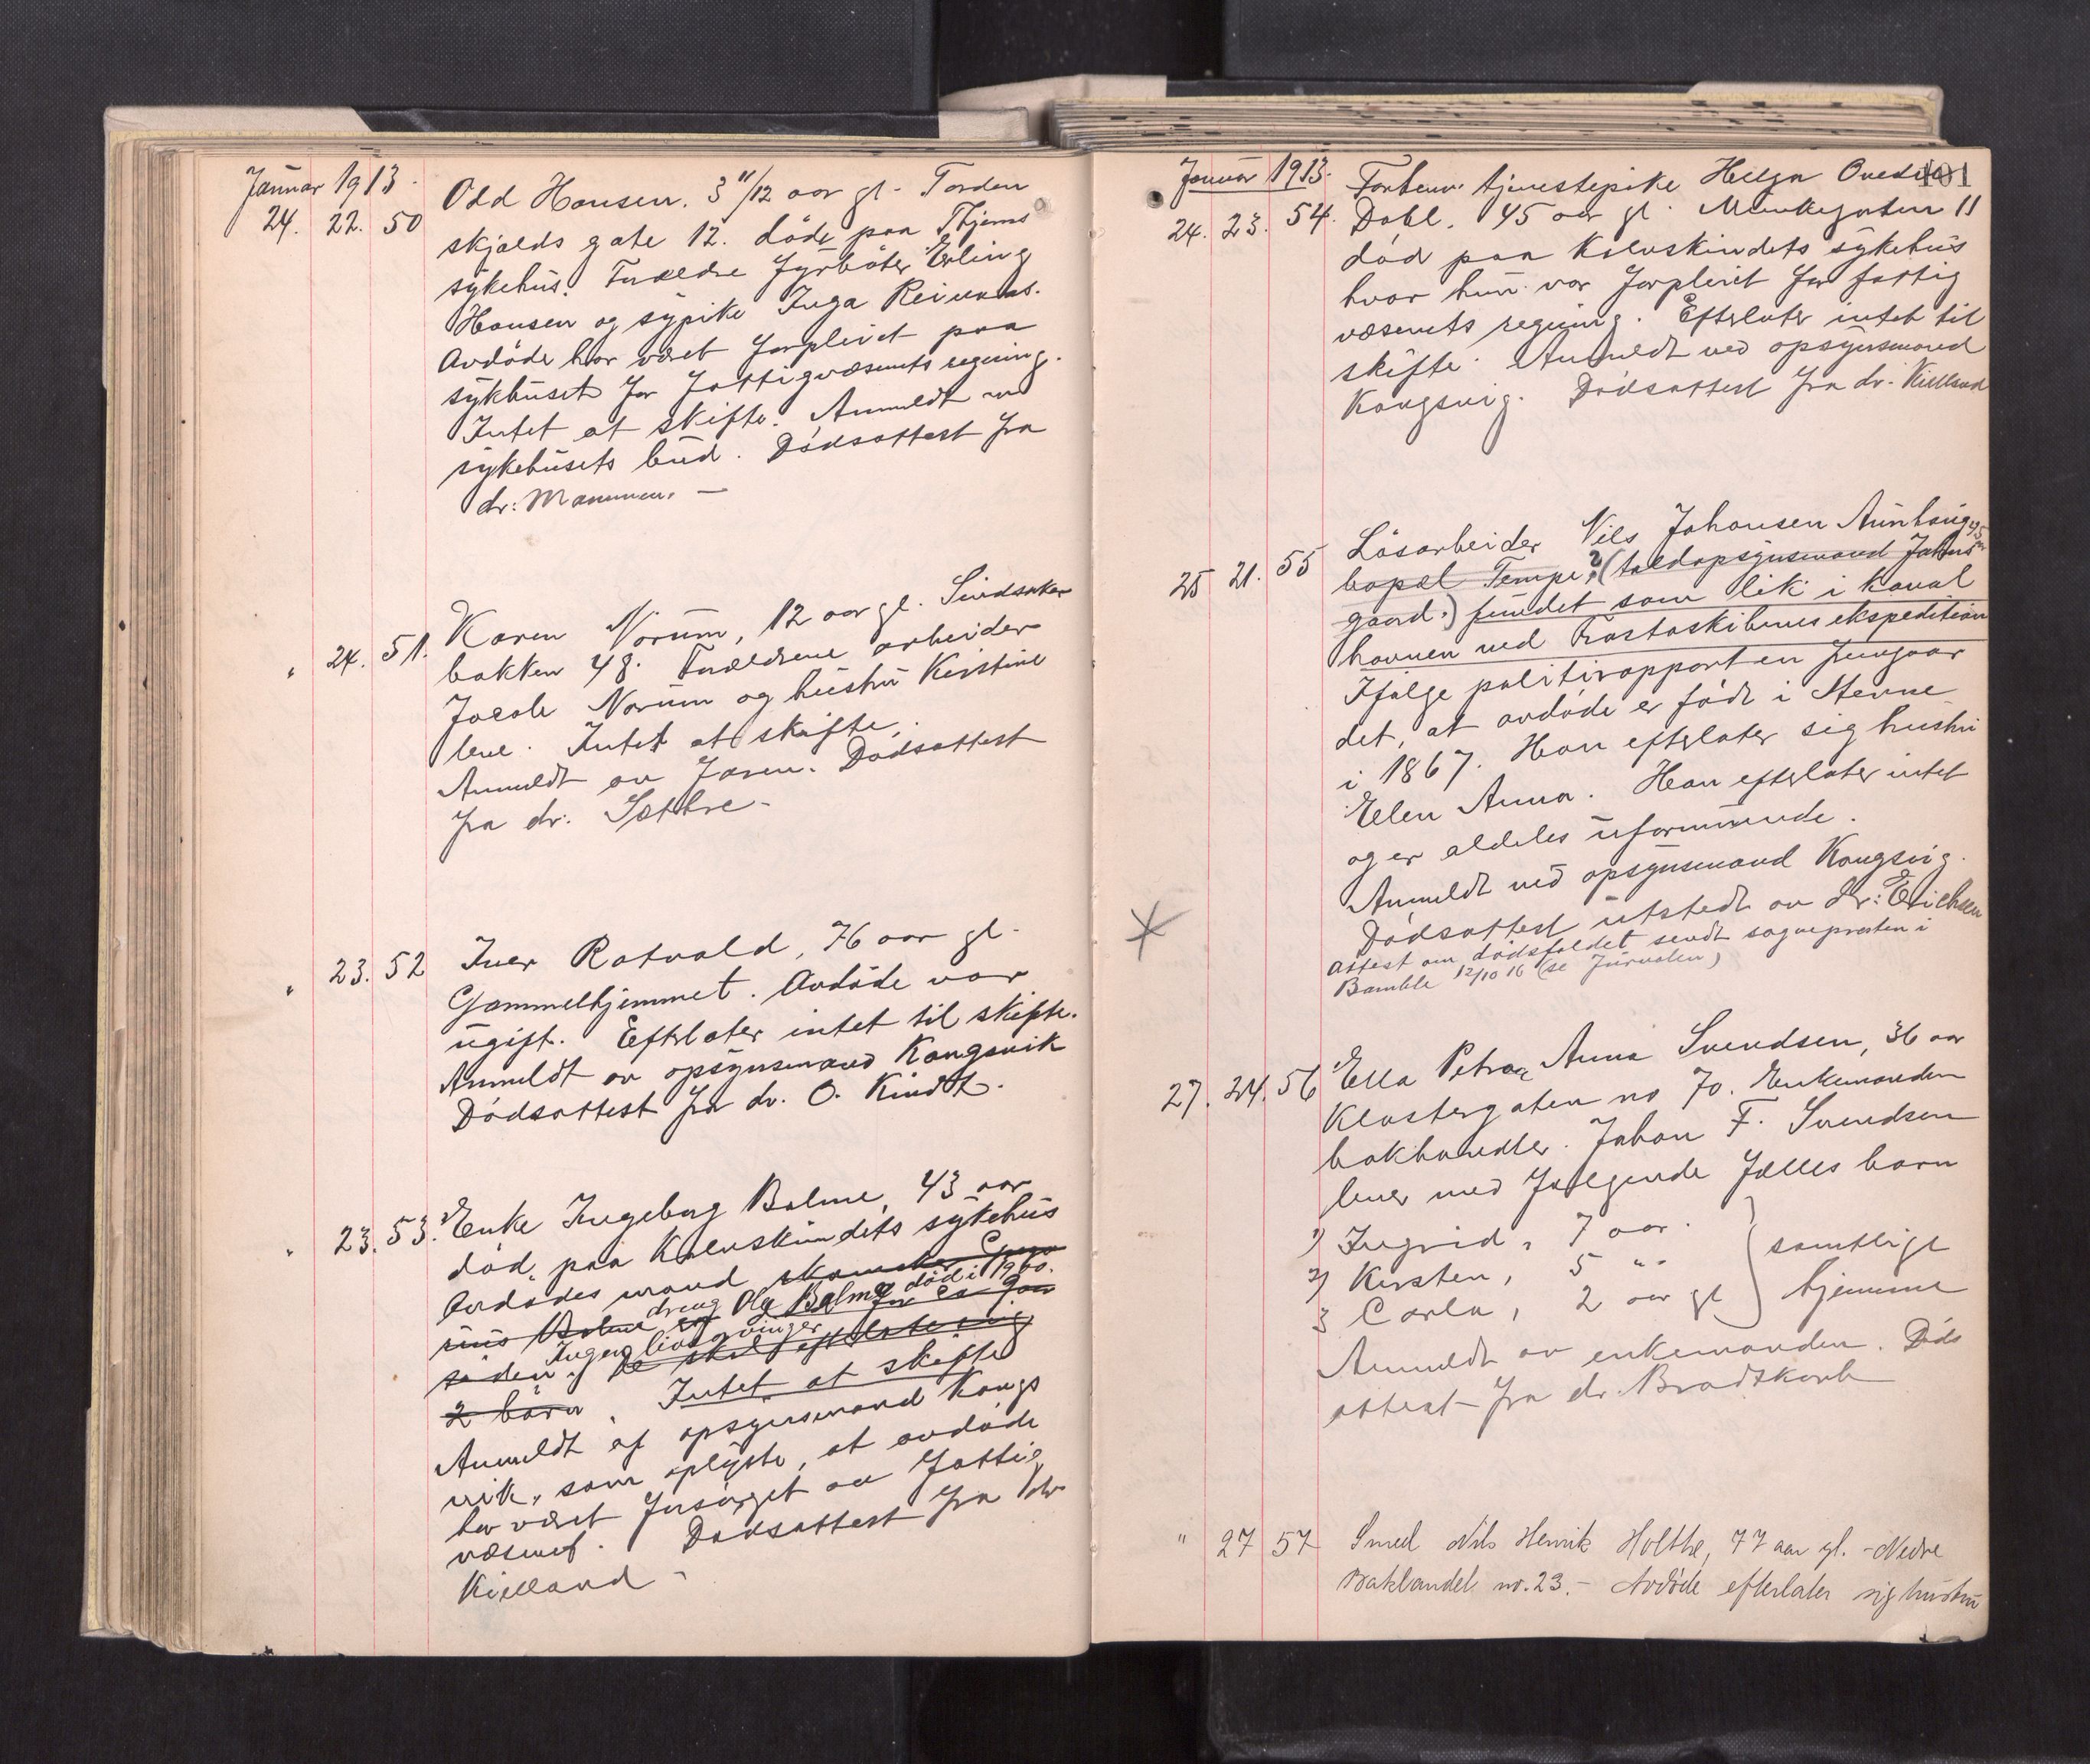 Januar 1913.
24. 22. 50 Odd Hansen. 3 11/12 aar gl. Torden
skjolds gate 12. døde paa Thjems
sykehus. Foreldre fyrbøter Erling
Hansen og sypike Inga
Avdøde har været forpleiet paa
sykhuset for fattigvæsenets regning.
Intet at skifte. Anmeldt ved
sykehusets bud. Dødsattest fra
dr:
" 24. 51. Karen Norum, 12 aar gl. Sindsaker
bakken 48. Forældrene arbeider
Jacob Norum og hustru Kirstine
leve. Intet at skifte.
Anmeldt av faren. Dødsattest
fra dr. Sæthre -
" 23. 52 Iver Ratvold, 76 aar gl.
Gammelhjemmet. Avdøde var
ugift. Efterlater intet til skifte.
Anmeldt av opsynsmand Kongsvik
Dødsattest fra dr. O. Kindt.
" 23. 53. Enke Ingeborg Bolme, 43 aar
død paa Kalvskindets sykehus
Avdødes mand skomaker
dreng Ole Bolme død i 1900.
Ingen livsarvinger
siden. De skal efterlate sig
2 børn. Intet at skifte
Anmeldt af opsynsmand Kongs
vik, som oplyste, at avdøde
har været forsørget av fattig
væsenet. Dødsattest fra dr
Kielland -
Januar 1913.
101
24. 23. 54. Forhenv. tjenestepike Helga
Dahl. 45 aar gl. Munkegaten 11
død paa Kalvskindets sykehus
hvor hun var forpleiet for fattig
væsenets regning. Efterlater intet til
skifte. Anmeldt ved opsynsmand
Kongsvig. Dødsattest fra dr. Kielland
25 21. 55 Løsarbeider Nils Johansen Aunhaug 45 aar
bopæl Tempe? (toldopsynsmand
gaard.) fundet som lik i kanal
havnen ved Frostaskibenes ekspedition
Ifølge politirapporten fremgaar
det, at avdøde er født i Stenne
i 1867. Han efterlater sig hustru
Ellen Anna. Han efterlater intet
og er aldeles uformuende.
Anmeldt ved opsynsmand Kongsvig.
Dødsattest utstedt av dr: Erichsen
Attest om dødsfaldet sendt sognepresten i
Bamble 12/10 16 (se Jurnalen)
27. 24. 56 Ella Petra Anna Svendsen, 36 aar
Klostergaten no 70. Enkemanden
bokhandler. Johan F. Svendsen
lever med følgende fælles barn
1) Ingrid, 7 aar.
2) Kirsten, 5 " -
3 Carla, 2 aar gl
samtlige
hjemme
Anmeldt av enkemanden. Døds
attest fra dr. Bradskorb
" 27 57 Smed Nils Henrik Holthe, 77 aar gl. - Nedre
Baklandet nr. 23. - Avdøde efterlater sig hustru